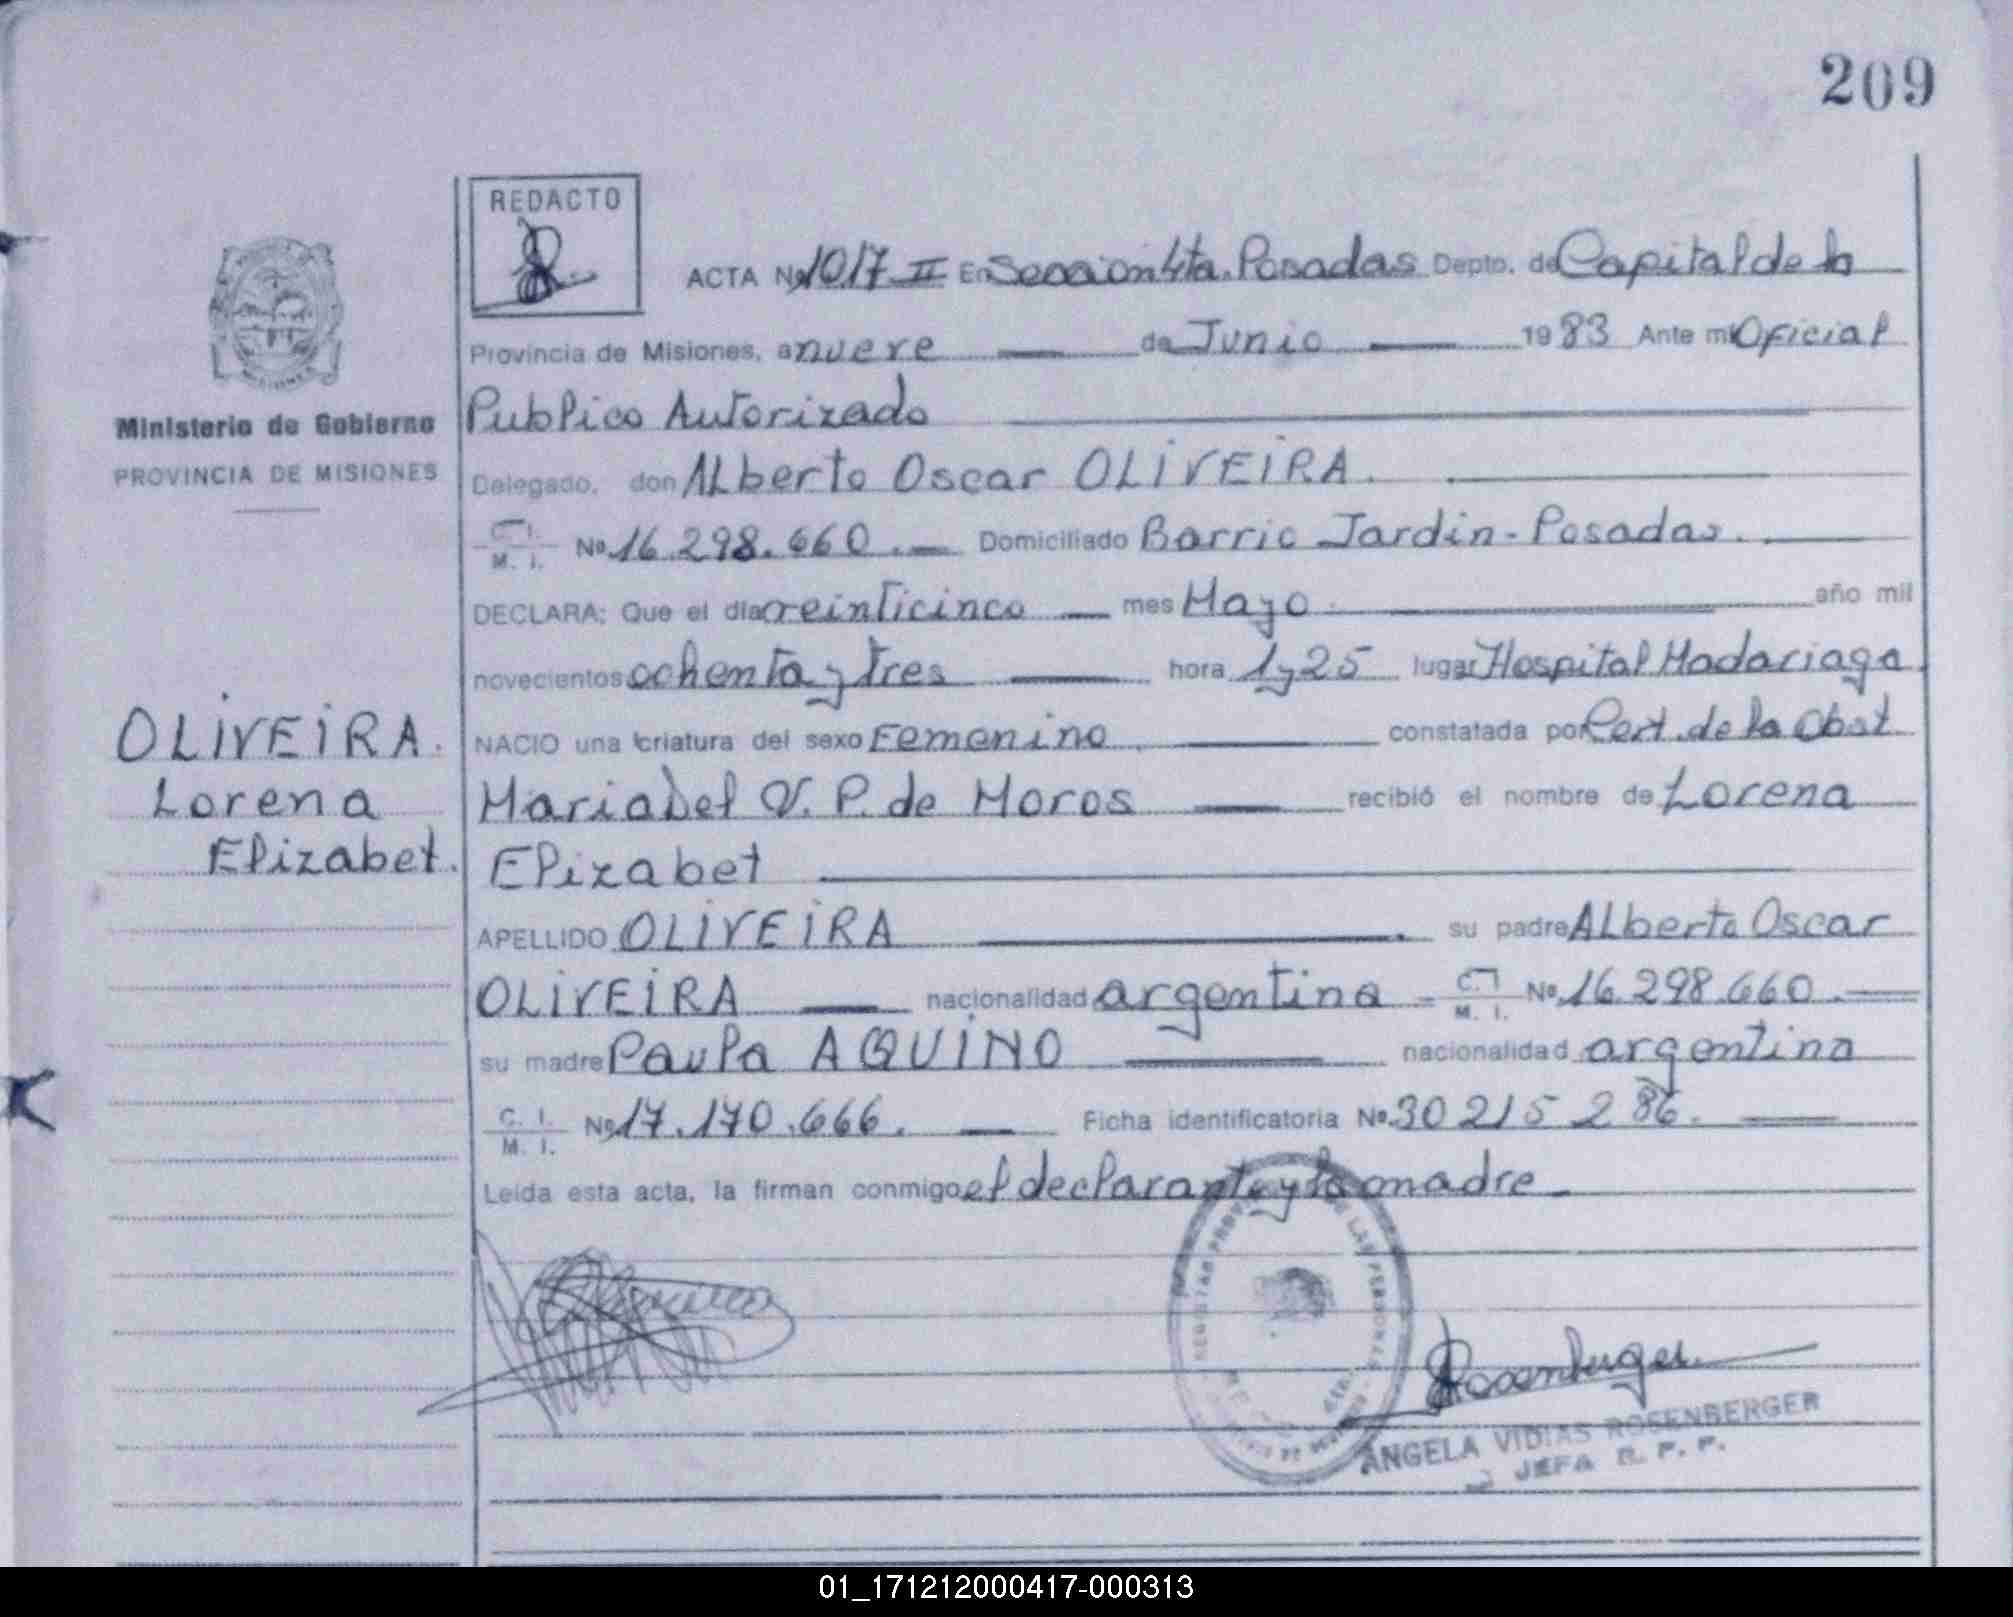 209
REDACTO
ACTA Nº 1017 II En Sección 4ta. Posadas Depto. de Capital de la
Provincia de Misiones, a nueve de Junio 1983 Ante mi Oficial
Publico Autorizado
Ministerio de Gobierno
PROVINCIA DE MISIONES
Delegado, don Alberto Oscar OLIVEIRA.
C. I.
M. I. Nº 16.298.660. Domiciliado Barrio Jardin - Posadas.
DECLARA: Que el día veinticinco mes Mayo año mil
novecientos ochenta y tres hora 1 y 25 lugar Hospital Madariaga
OLIVEIRA.
Lorena
Elizabet.
NACIO una criatura del sexo Femenino constatada por Cert. de la Obst
Mariabel V. P. de Moros recibió el nombre de Lorena
Elizabet
APELLIDO OLIVEIRA su padre Alberto Oscar
OLIVEIRA nacionalidad argentina C. I.
M. I. Nº 16.298.660.
su madre Paula AQUINO nacionalidad argentina
C. I.
M. I. Nº 17.170.666. Ficha identificatoria Nº 30215286.
Leída esta acta, la firman conmigo el declarante y la madre
Rosenberger
ANGELA VIDIAS ROSENBERGER
JEFA R. P. P.
01_171212000417-000313